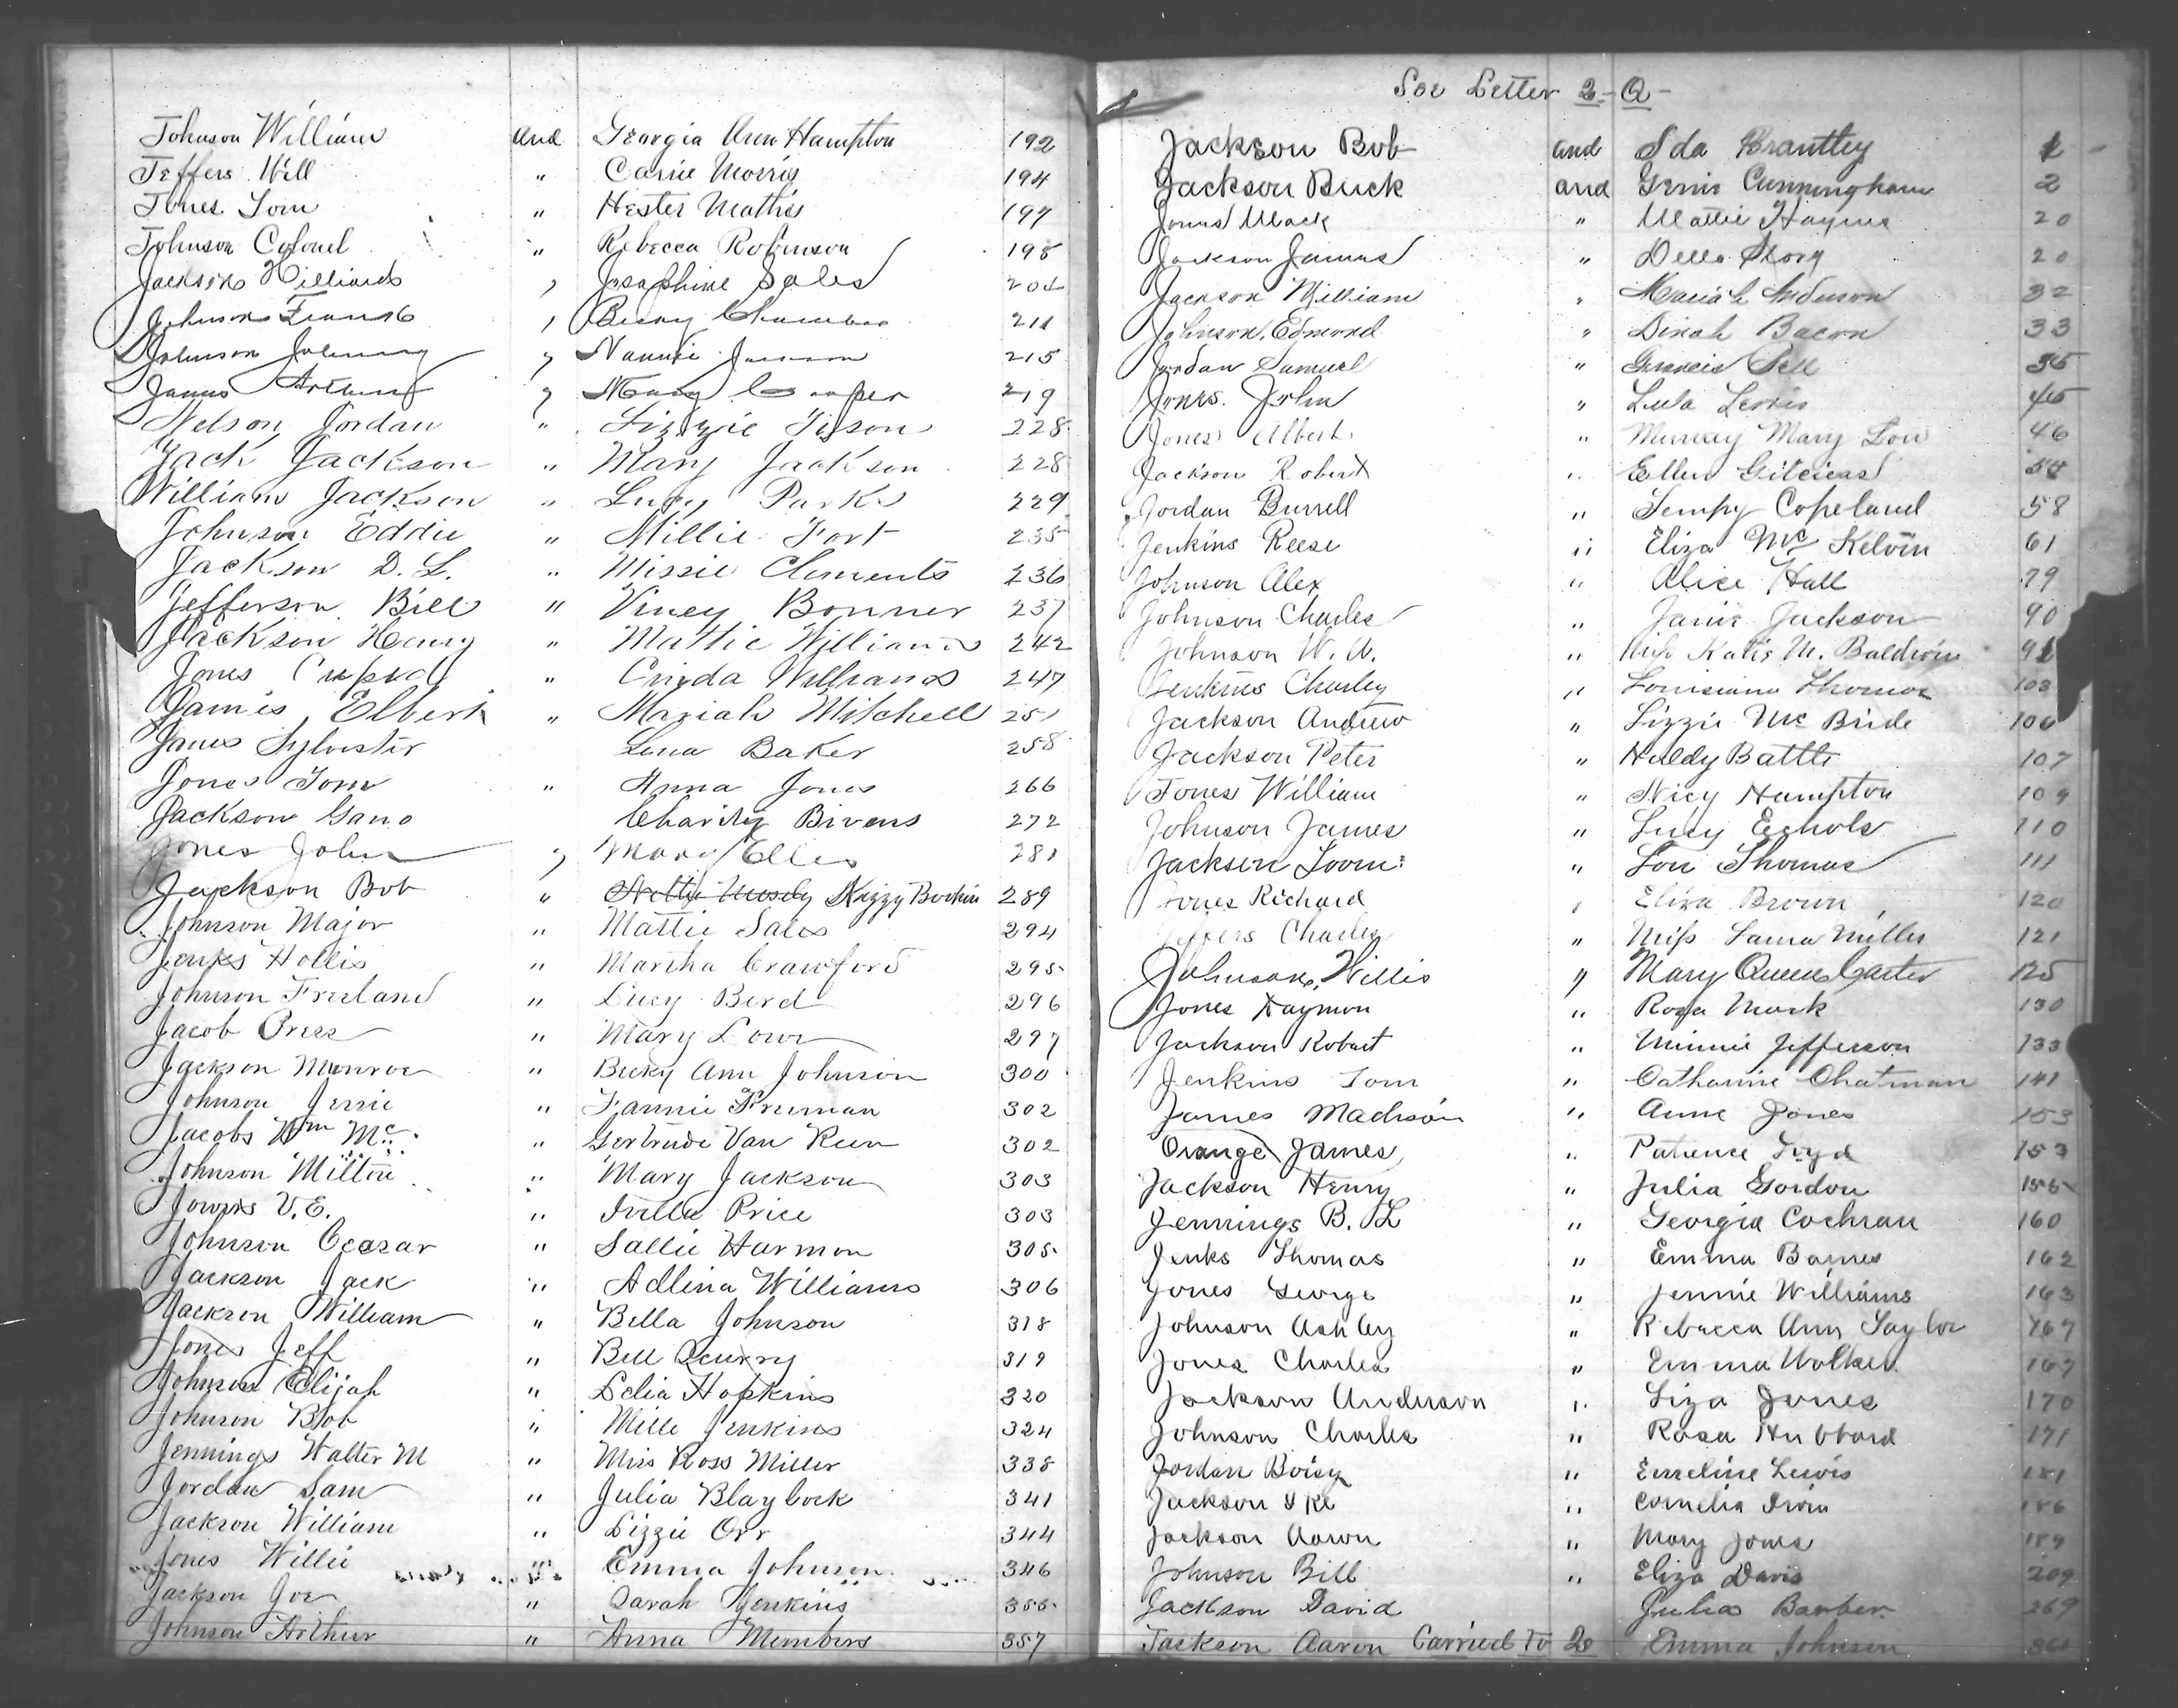 Johnson William and Georgia Ann Hampton 192
Jeffers Will " Carrie Morris 194
Jones Tom " Hester Mathis 197
Johnson Colonel " Rebecca Robinson 198
Jackson Hilliard " Josaphine Sales 204
Johnson Frank " Becky Chambers 211
Johnson Johnny " Nannie 215
James Arthur " Mary Cooper 219
Nelson Jordan " Lizzie Tison 228
Jack Jackson " Mary Jackson 228
William Jackson " Lucy Parks 229
Johnson Eddie " Millie Fort 235
Jackson D. L. " Missie Clements 236
Jefferson Bill " Viney Bonner 237
Jackson Henry " Mattie Williams 242
Jones Cupid " Williams 247
James Elbert " Mariah Mitchell 251
Janes Sylvester Lena Baker 258
Jones Tom " Anna Jones 266
Jackson Gano Charity Bivens 272
Jones John " Mary Elles 281
Jackson Bob " Nettie Mosely Kizzy Bodkin 289
Johnson Major " Mattie Sales 294
Jenks Hollis " Martha Crawford 295
Johnson Freeland " Lucy Berd 296
Jacob Press " Mary Lowe 297
Jackson Monroe " Becky Ann Johnson 300
Johnson Jessie " Fannie Freeman 302
Jacobs Wm Mc " Gertrude Van Keen 302
Johnson Milton " Mary Jackson 303
V. E. " Price 303
Johnson Ceasar " Sallie Harmon 305
Jackson Jack " Adlina Williams 306
Jackson William " Bella Johnson 318
Jones Jeff " Bell 319
Johnson Elijah " Delia Hopkins 320
Johnson Bob " Mille Jenkins 324
Jennings Walter M " Miss Ross Miller 338
Jordan Sam " Julia Blaylock 341
Jackson William " Lizzie Orr 344
Jones Willie " Emma Johnson 346
Jackson Joe " Sarah Jenkins 355
Johnson Arthur " Anna Members 357
See Letter 2-Q-
Jackson Bob and Ida Brantley 1
Jackson Buck and Genie Cunningham 2
Jones Mack " Mattie Haynes 20
Jackson James " Della Story 20
Jackson William " Mariah Anderson 32
Johnson, Edmond " Dinah Bacon 33
Jordan Samuel " Bell 35
Jones. John " Lula Lewis 45
Jones Albert " Murray Mary Lou 46
Jackson Robert " Ellen 54
Jordan Burrell " Tempy Copeland 58
Jenkins Reese " Eliza Mc Kelvin 61
Johnson Alex " Alice Hall 79
Johnson Charles " Janie Jackson 90
Johnson W. W. " Miss Katie M. Baldwin 91
Jenkins Charley " Louisiana Thomas 103
Jackson Andrew " Lizzie Mc Bride 106
Jackson Peter " Huldy Battle 107
Jones William " Nicy Hampton 109
Johnson James " Lucy Echols 110
Jackson Loom: " Lou Thomas 111
Jones Richard " Eliza Brown 120
Jeffers Charley " Miss Laura Miller 121
Johnson, Willis " Mary Queen Carter 125
Jones Haymon " Rosa Mark 130
Jackson Robert " Minnie Jefferson 133
Jenkins Tom " Catharine Chatman 141
James Madison " Anne Jones 153
Orange James " Patience Loyd 153
Jackson Henry " Julia Gordon 155
Jennings B. L " Georgia Cochran 160
Jenks Thomas " Emma Barnes 162
Jones George " Jennie Williams 163
Johnson Ashley " Rebecca Ann Taylor 167
Jones Charles " Emma Walker 167
Jackson Anderson " Liza Jones 170
Johnson Charles " Rosa Hubbard 171
Jordan Boisy " Emeline Lewis 181
Jackson Ike " Cornelia Irvin 186
Jackson Aaron " Mary Jones 189
Johnson Bill " Eliza Davis 209
Jackson David Julia Barber 269
Jackson Aaron Carried To 2 Emma Johnson